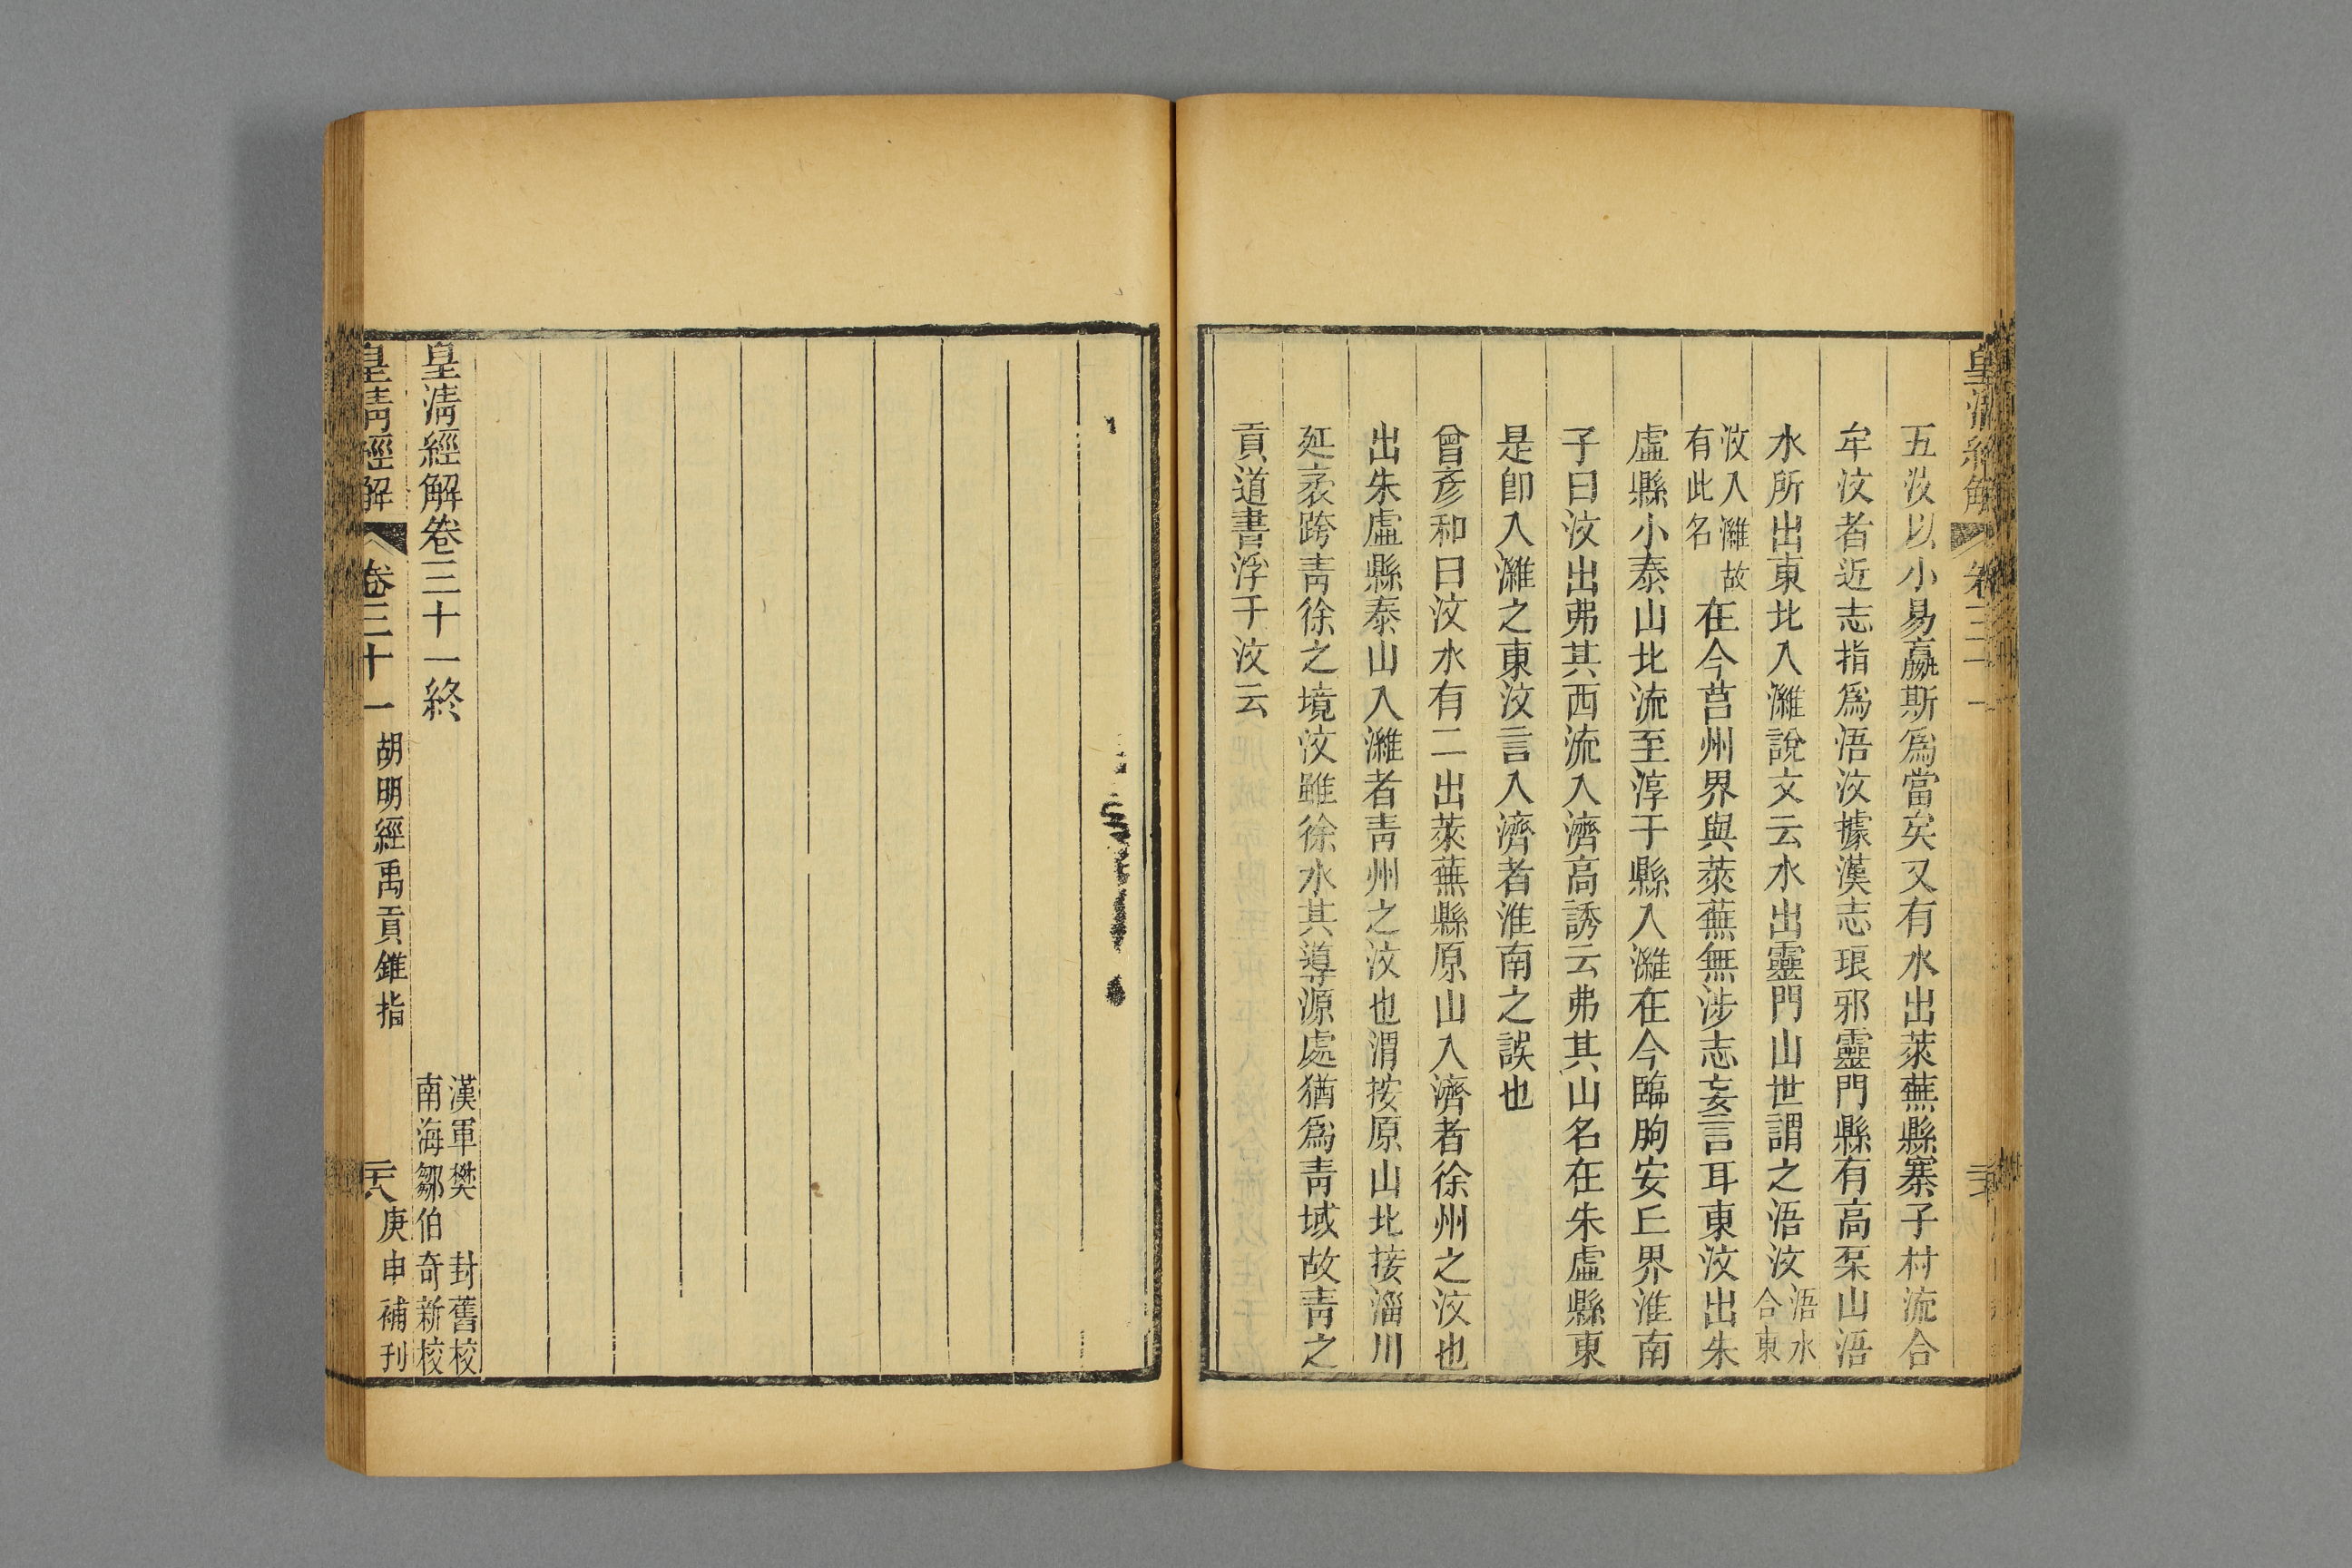 五汶以小易嬴斯爲當矣又有水出萊蕪縣寨子村流合
牟汶者近志指爲浯汶據漢志琅邪靈門縣有高𣓨山浯
水所出東北入濰說文云水出靈門山世謂之浯汶浯水合東
汶入濰故有此名在今莒州界與萊蕪無涉志妄言耳東汶出朱
虛縣小泰山北流至淳于縣入濰在今臨朐安丘界淮南
子曰汶出弗其西流入濟高誘云弗其山名在朱虛縣東
是卽入濰之東汶言入濟者淮南之誤也
曾彥和曰汶水有二出萊蕪縣原山入濟者徐州之汶也
出朱虛縣泰山入濰者靑州之汶也渭按原山北接淄川
延袤跨靑徐之境汶雖徐水其導源處猶爲靑域故靑之
貢道書浮于汶云
皇淸經解卷三十一終
漢軍樊封舊校
南海鄒伯奇新校
皇淸經解 卷三十一 胡明經禹貢錐指 庚申補刊